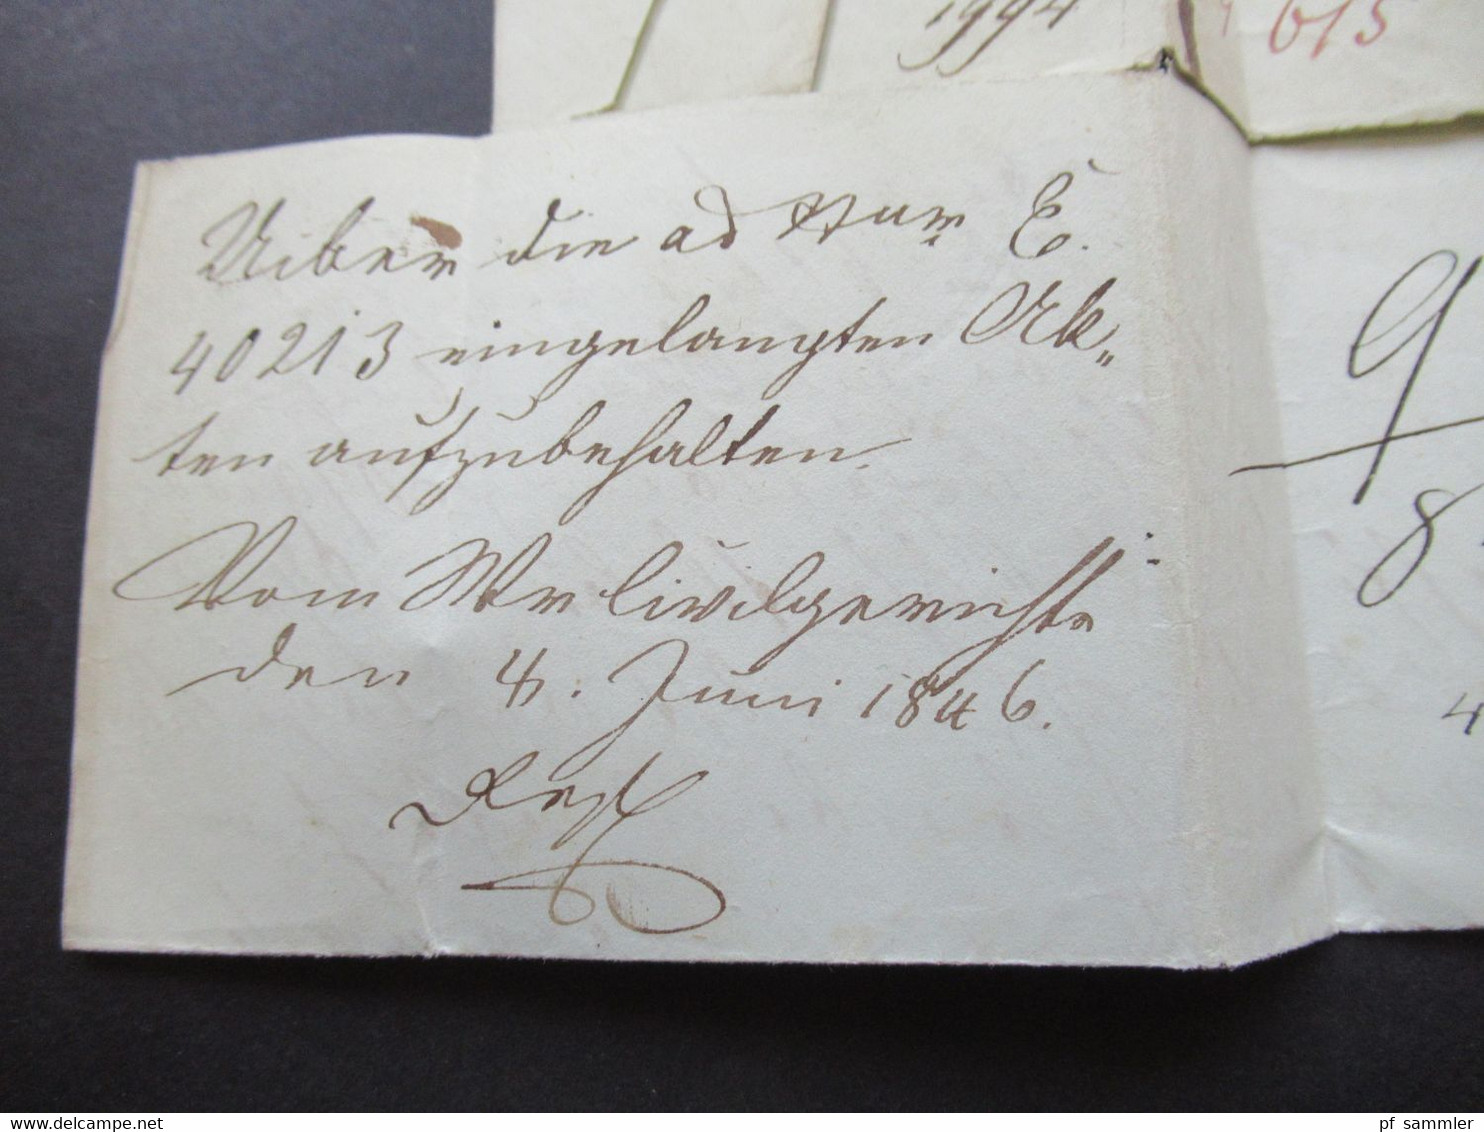 1994
615
Ueber die ad Num E.
40213 eingelangten Ak„
ten aufzubehalten.
Vom Wr Civilgerichte
den 4. Juni 1846.
9
8
4
delcampe.net
pf_sammler